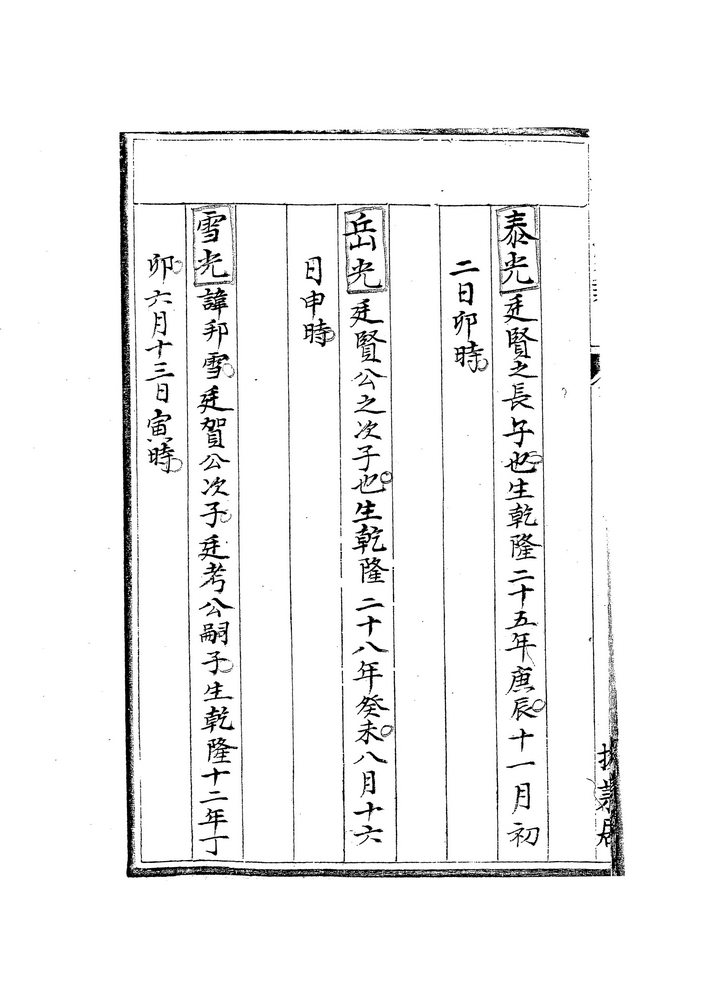 泰光廷賢之長子也生乾隆二十五年庚辰十一月初
二日卯時
岳光廷賢公之次子也生乾隆二十八年癸未八月十六
日申時
雪光諱邦雪廷賀公次子廷考公嗣子生乾隆十二年丁
卯六月十三日寅時